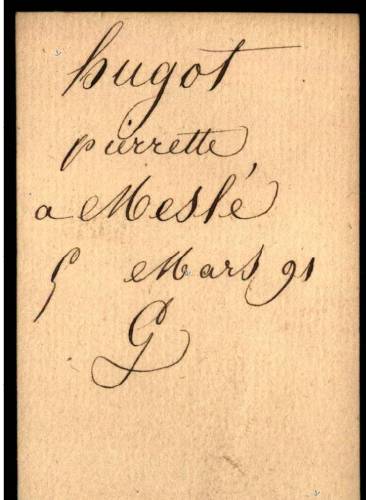 hugot
pierrette
a Meslé
5 Mars 91
G